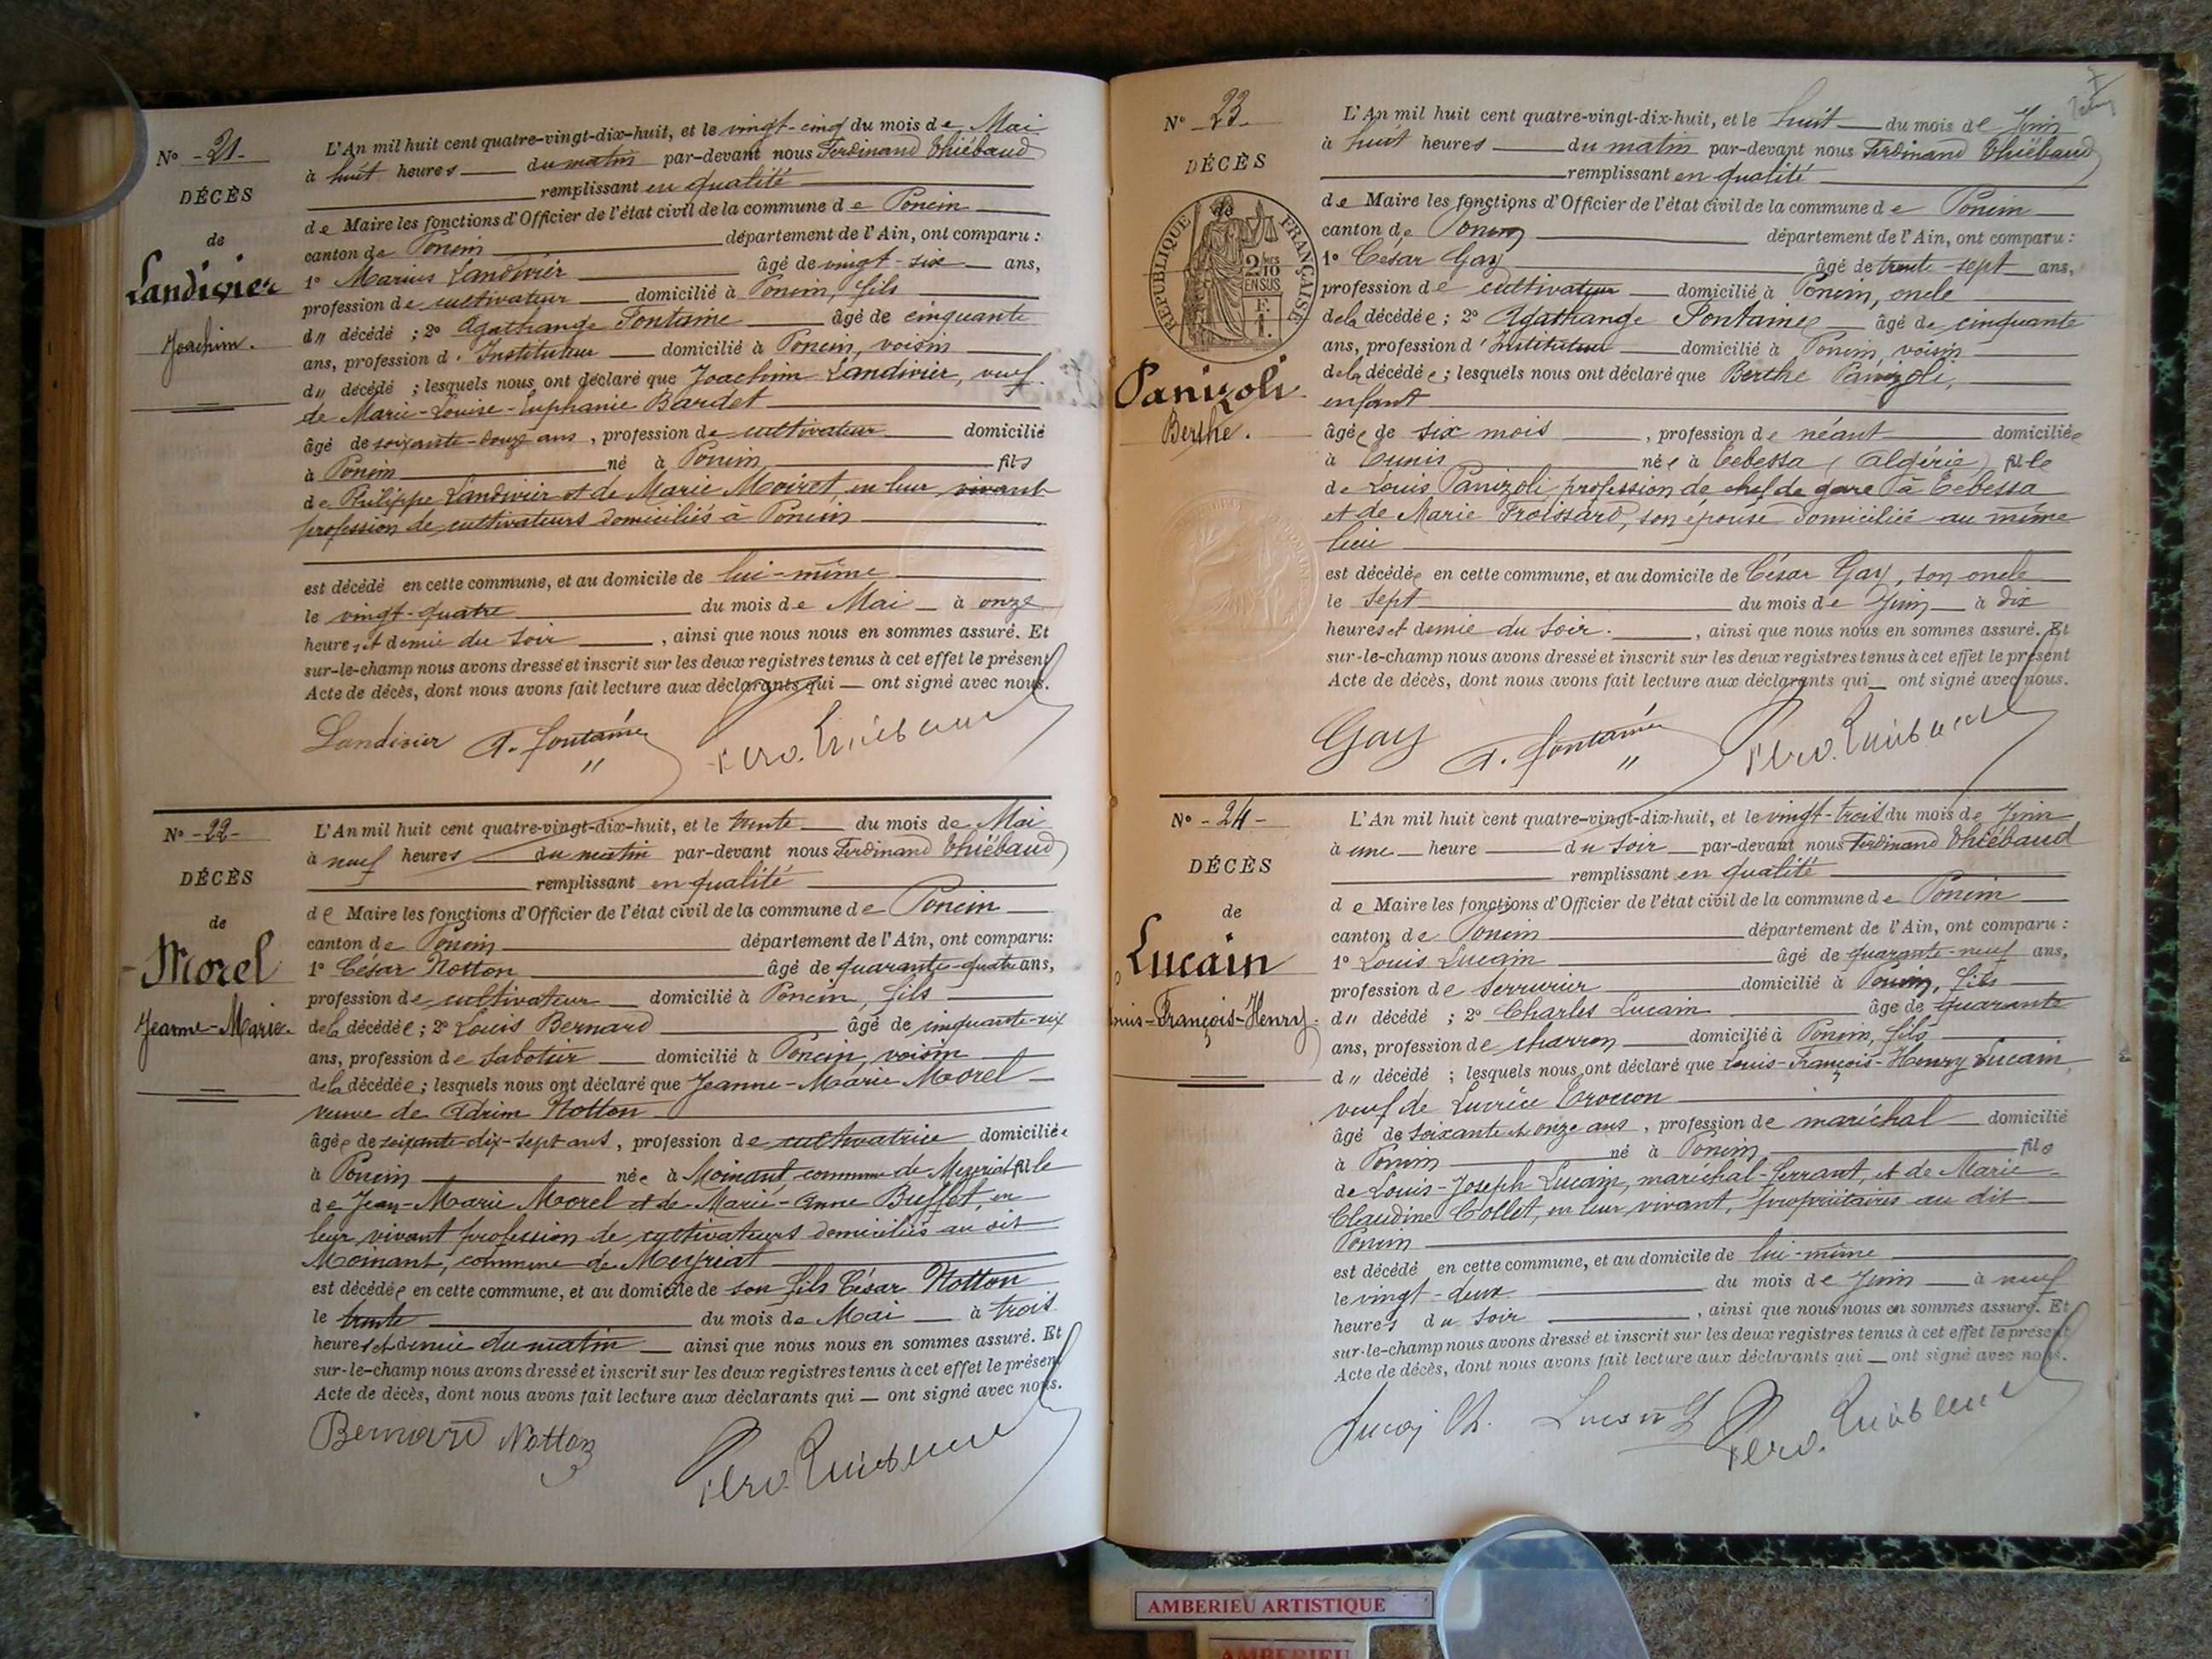 N° - 21 -
DÉCÈS
de
Landivier
Joachim.
L'An mil huit cent quatre-vingt-dix-huit, et le vingt-cinq du mois de Mai
à huit heures du matin par-devant nous Ferdinand Thiébaud
remplissant en qualité
de Maire les fonctions d'Officier de l'état civil de la commune de Poncin
canton de Poncin département de l'Ain, ont comparu :
1° Marius Landivier âgé de vingt-six ans,
profession de cultivateur domicilié à Poncin, fils
d" décédé ; 2° Agathange Fontaine âgé de cinquante
ans, profession d'Instituteur domicilié à Poncin, voisin
d" décédé ; lesquels nous ont déclaré que Joachim Landivier, veuf
de Marie-Louise-Euphanie Bardet
âgé de soixante-douze ans, profession de cultivateur domicilié
à Poncin né à Poncin fils
de Philippe Landivier et de Marie Moiret, en leur vivant
profession de cultivateurs domiciliés à Poncin
est décédé en cette commune, et au domicile de lui-même
le vingt-quatre du mois de Mai à onze
heures et demie du soir, ainsi que nous nous en sommes assuré. Et
sur-le-champ nous avons dressé et inscrit sur les deux registres tenus à cet effet le présent
Acte de décès, dont nous avons fait lecture aux déclarants qui — ont signé avec nous.
Landivier A. Fontaine Ferd. Thiébaud
N° - 22 -
DÉCÈS
de
Morel
Jeanne-Marie.
L'An mil huit cent quatre-vingt-dix-huit, et le trente du mois de Mai
à neuf heures du matin par-devant nous Ferdinand Thiébaud
remplissant en qualité
de Maire les fonctions d'Officier de l'état civil de la commune de Poncin
canton de Poncin département de l'Ain, ont comparu :
1° César Notton âgé de quarante-quatre ans,
profession de cultivateur domicilié à Poncin, fils
de la décédée ; 2° Louis Bernard âgé de cinquante-six
ans, profession de sabotier domicilié à Poncin, voisin
de la décédée ; lesquels nous ont déclaré que Jeanne-Marie Morel
veuve de Adrien Notton
âgée de soixante-dix-sept ans, profession de cultivatrice domiciliée
à Poncin née à Moinant, commune de Meyriat fille
de Jean-Marie Morel et de Marie-Anne Buffet, en
leur vivant profession de cultivateurs domiciliés au dit
Moinant, commune de Meyriat
est décédée en cette commune, et au domicile de son fils César Notton
le trente du mois de Mai à trois
heures et demie du matin ainsi que nous nous en sommes assuré. Et
sur-le-champ nous avons dressé et inscrit sur les deux registres tenus à cet effet le présent
Acte de décès, dont nous avons fait lecture aux déclarants qui — ont signé avec nous.
Bernard Notton Ferd. Thiébaud
N° 23 -
DÉCÈS
de
RÉPUBLIQUE FRANÇAISE
2/10 EN SUS
Panizoli
Berthe.
L'An mil huit cent quatre-vingt-dix-huit, et le huit du mois de Juin
à huit heures du matin par-devant nous Ferdinand Thiébaud
remplissant en qualité
de Maire les fonctions d'Officier de l'état civil de la commune de Poncin
canton de Poncin département de l'Ain, ont comparu :
1° César Gay âgé de trente-sept ans,
profession de cultivateur domicilié à Poncin, oncle
de la décédée ; 2° Agathange Fontaine âgé de cinquante
ans, profession d'Instituteur domicilié à Poncin, voisin
de la décédée ; lesquels nous ont déclaré que Berthe Panizoli,
enfant
âgée de six mois, profession de néant domiciliée
à Tunis née à Tebessa (Algérie) fille
de Louis Panizoli, profession de chef de gare à Tebessa
et de Marie Froissard, son épouse domiciliée au même
lieu
est décédée en cette commune, et au domicile de César Gay, son oncle
le sept du mois de Juin à dix
heures et demie du soir., ainsi que nous nous en sommes assuré. Et
sur-le-champ nous avons dressé et inscrit sur les deux registres tenus à cet effet le présent
Acte de décès, dont nous avons fait lecture aux déclarants qui — ont signé avec nous.
Gay A. Fontaine Ferd. Thiébaud
N° - 24 -
DÉCÈS
de
Lucain
Louis-François-Henry.
L'An mil huit cent quatre-vingt-dix-huit, et le vingt-trois du mois de Juin
à une heure du soir par-devant nous Ferdinand Thiébaud
remplissant en qualité
de Maire les fonctions d'Officier de l'état civil de la commune de Poncin
canton de Poncin département de l'Ain, ont comparu :
1° Louis Lucain âgé de quarante-neuf ans,
profession de serrurier domicilié à Poncin, fils
d" décédé ; 2° Charles Lucain âgé de quarante
ans, profession de charron domicilié à Poncin, fils
d" décédé ; lesquels nous ont déclaré que Louis-François-Henry Lucain,
veuf de Lucrèce
âgé de soixante et onze ans, profession de maréchal domicilié
à Poncin né à Poncin fils
de Louis-Joseph Lucain, maréchal-ferrant, et de Marie-
Claudine Collet, en leur vivant, propriétaires au dit
Poncin
est décédé en cette commune, et au domicile de lui-même
le vingt-deux du mois de Juin à neuf
heures du soir, ainsi que nous nous en sommes assuré. Et
sur-le-champ nous avons dressé et inscrit sur les deux registres tenus à cet effet le présent
Acte de décès, dont nous avons fait lecture aux déclarants qui — ont signé avec nous.
Lucain Ch. Lucain L Ferd. Thiébaud
AMBERIEU ARTISTIQUE
AMBERIEU